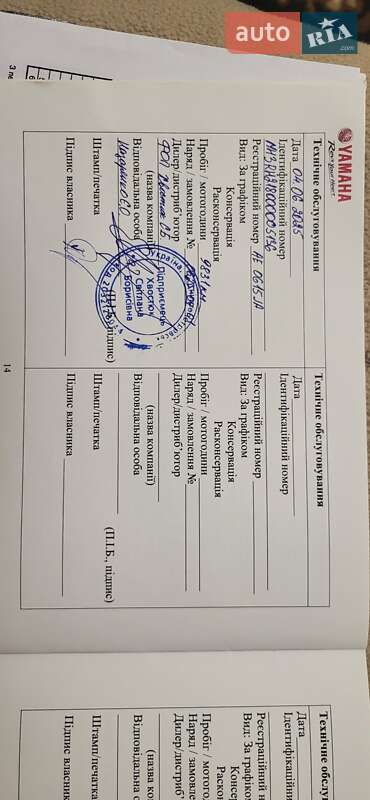 auto RIA .com
YAMAHA
Revs Your Heart
Технічне обслуговування
Дата 04.06.2025
Ідентифікаційний номер
Реєстраційний номер AE 0615 JA
Вид: За графіком
Консервація
Расконсервація
Пробіг / мотогодини 9831 км
Наряд / замовлення №
Дилер/дистриб'ютор
ФОП Хвостюк С.Б.
(назва компанії)
Відповідальна особа
Штамп/печатка (П.І.Б., підпис)
Підпис власника
Україна
Підприємець
Хвостюк
Світлана
Борисівна
14
Технічне обслуговування
Дата
Ідентифікаційний номер
Реєстраційний номер
Вид: За графіком
Консервація
Расконсервація
Пробіг / мотогодини
Наряд / замовлення №
Дилер/дистриб'ютор
(назва компанії)
Відповідальна особа
(П.І.Б., підпис)
Штамп/печатка
Підпис власника
Технічне обсл
Дата
Ідентифікаційн
Реєстраційний н
Вид: За графіко
Консе
Раскон
Пробіг / мотого
Наряд / замовле
Дилер/дистриб'
(назва ко
Відповідальна о
Штамп/печатка
Підпис власника